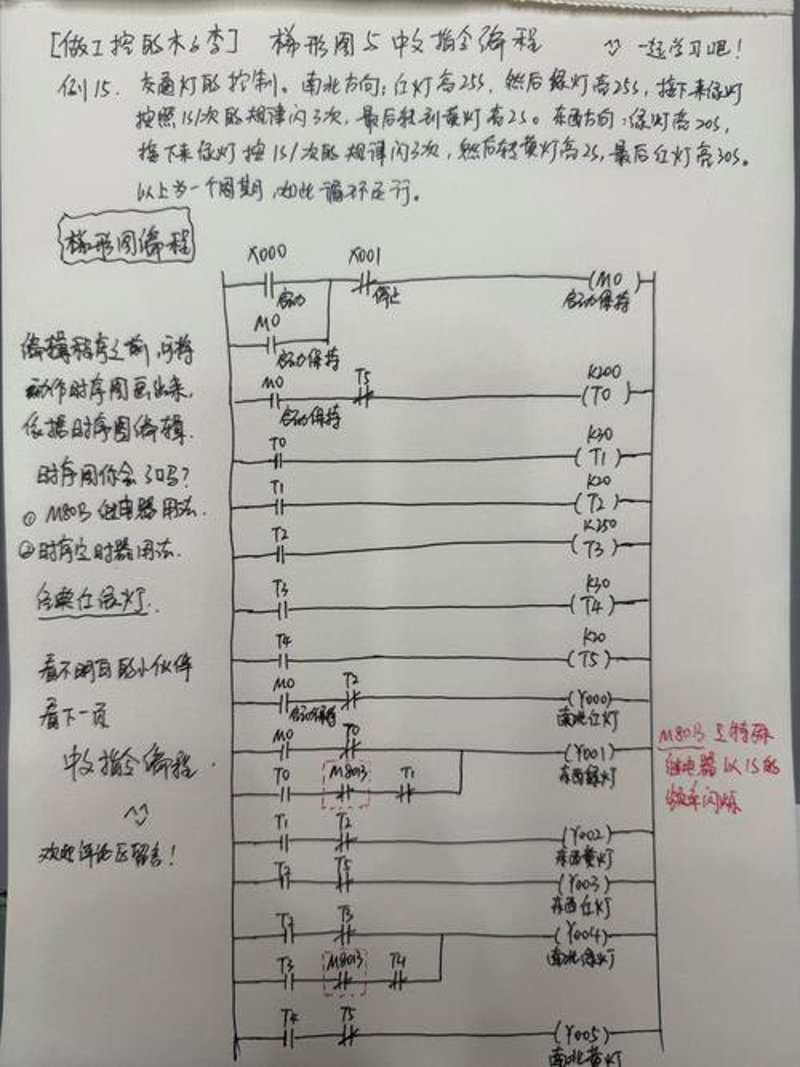 [做工控的木子李] 梯形图与中文指令编程 一起学习吧!
例15. 交通灯的控制。南北方向:红灯亮25S,然后绿灯亮25S,接下来绿灯
按照1S/次的规律闪3次,最后转到黄灯亮2S。东西方向:绿灯亮20S,
接下来绿灯按1S/次的规律闪3次,然后转黄灯亮2S,最后红灯亮30S。
以上为一个周期,如此循环运行。
梯形图编程
X000 X001
(M0)
启动 停止 启动保持
M0
启动保持
编辑程序之前,可将
动作时序图画出来,
依据时序图编辑.
时序图你会了吗?
① M8013 继电器用法.
②时序定时器用法.
看不明白的小伙伴
看下一页
中文指令编程.
欢迎评论区留言!
M0 T5 K200
(T0)
启动保持
T0 K30
(T1)
T1 K20
(T2)
T2 K250
(T3)
T3 K30
(T4)
T4 K20
(T5)
M0 T2
(Y000)
启动保持 南北红灯
M0 T0
(Y001)
东西绿灯
T0 M8013 T1
T1 T2
(Y002)
东西黄灯
T2 T5
(Y003)
东西红灯
T2 T3
(Y004)
南北绿灯
T3 M8013 T4
T4 T5
(Y005)
南北黄灯
M8013 是特殊
继电器以1S的
频率闪烁